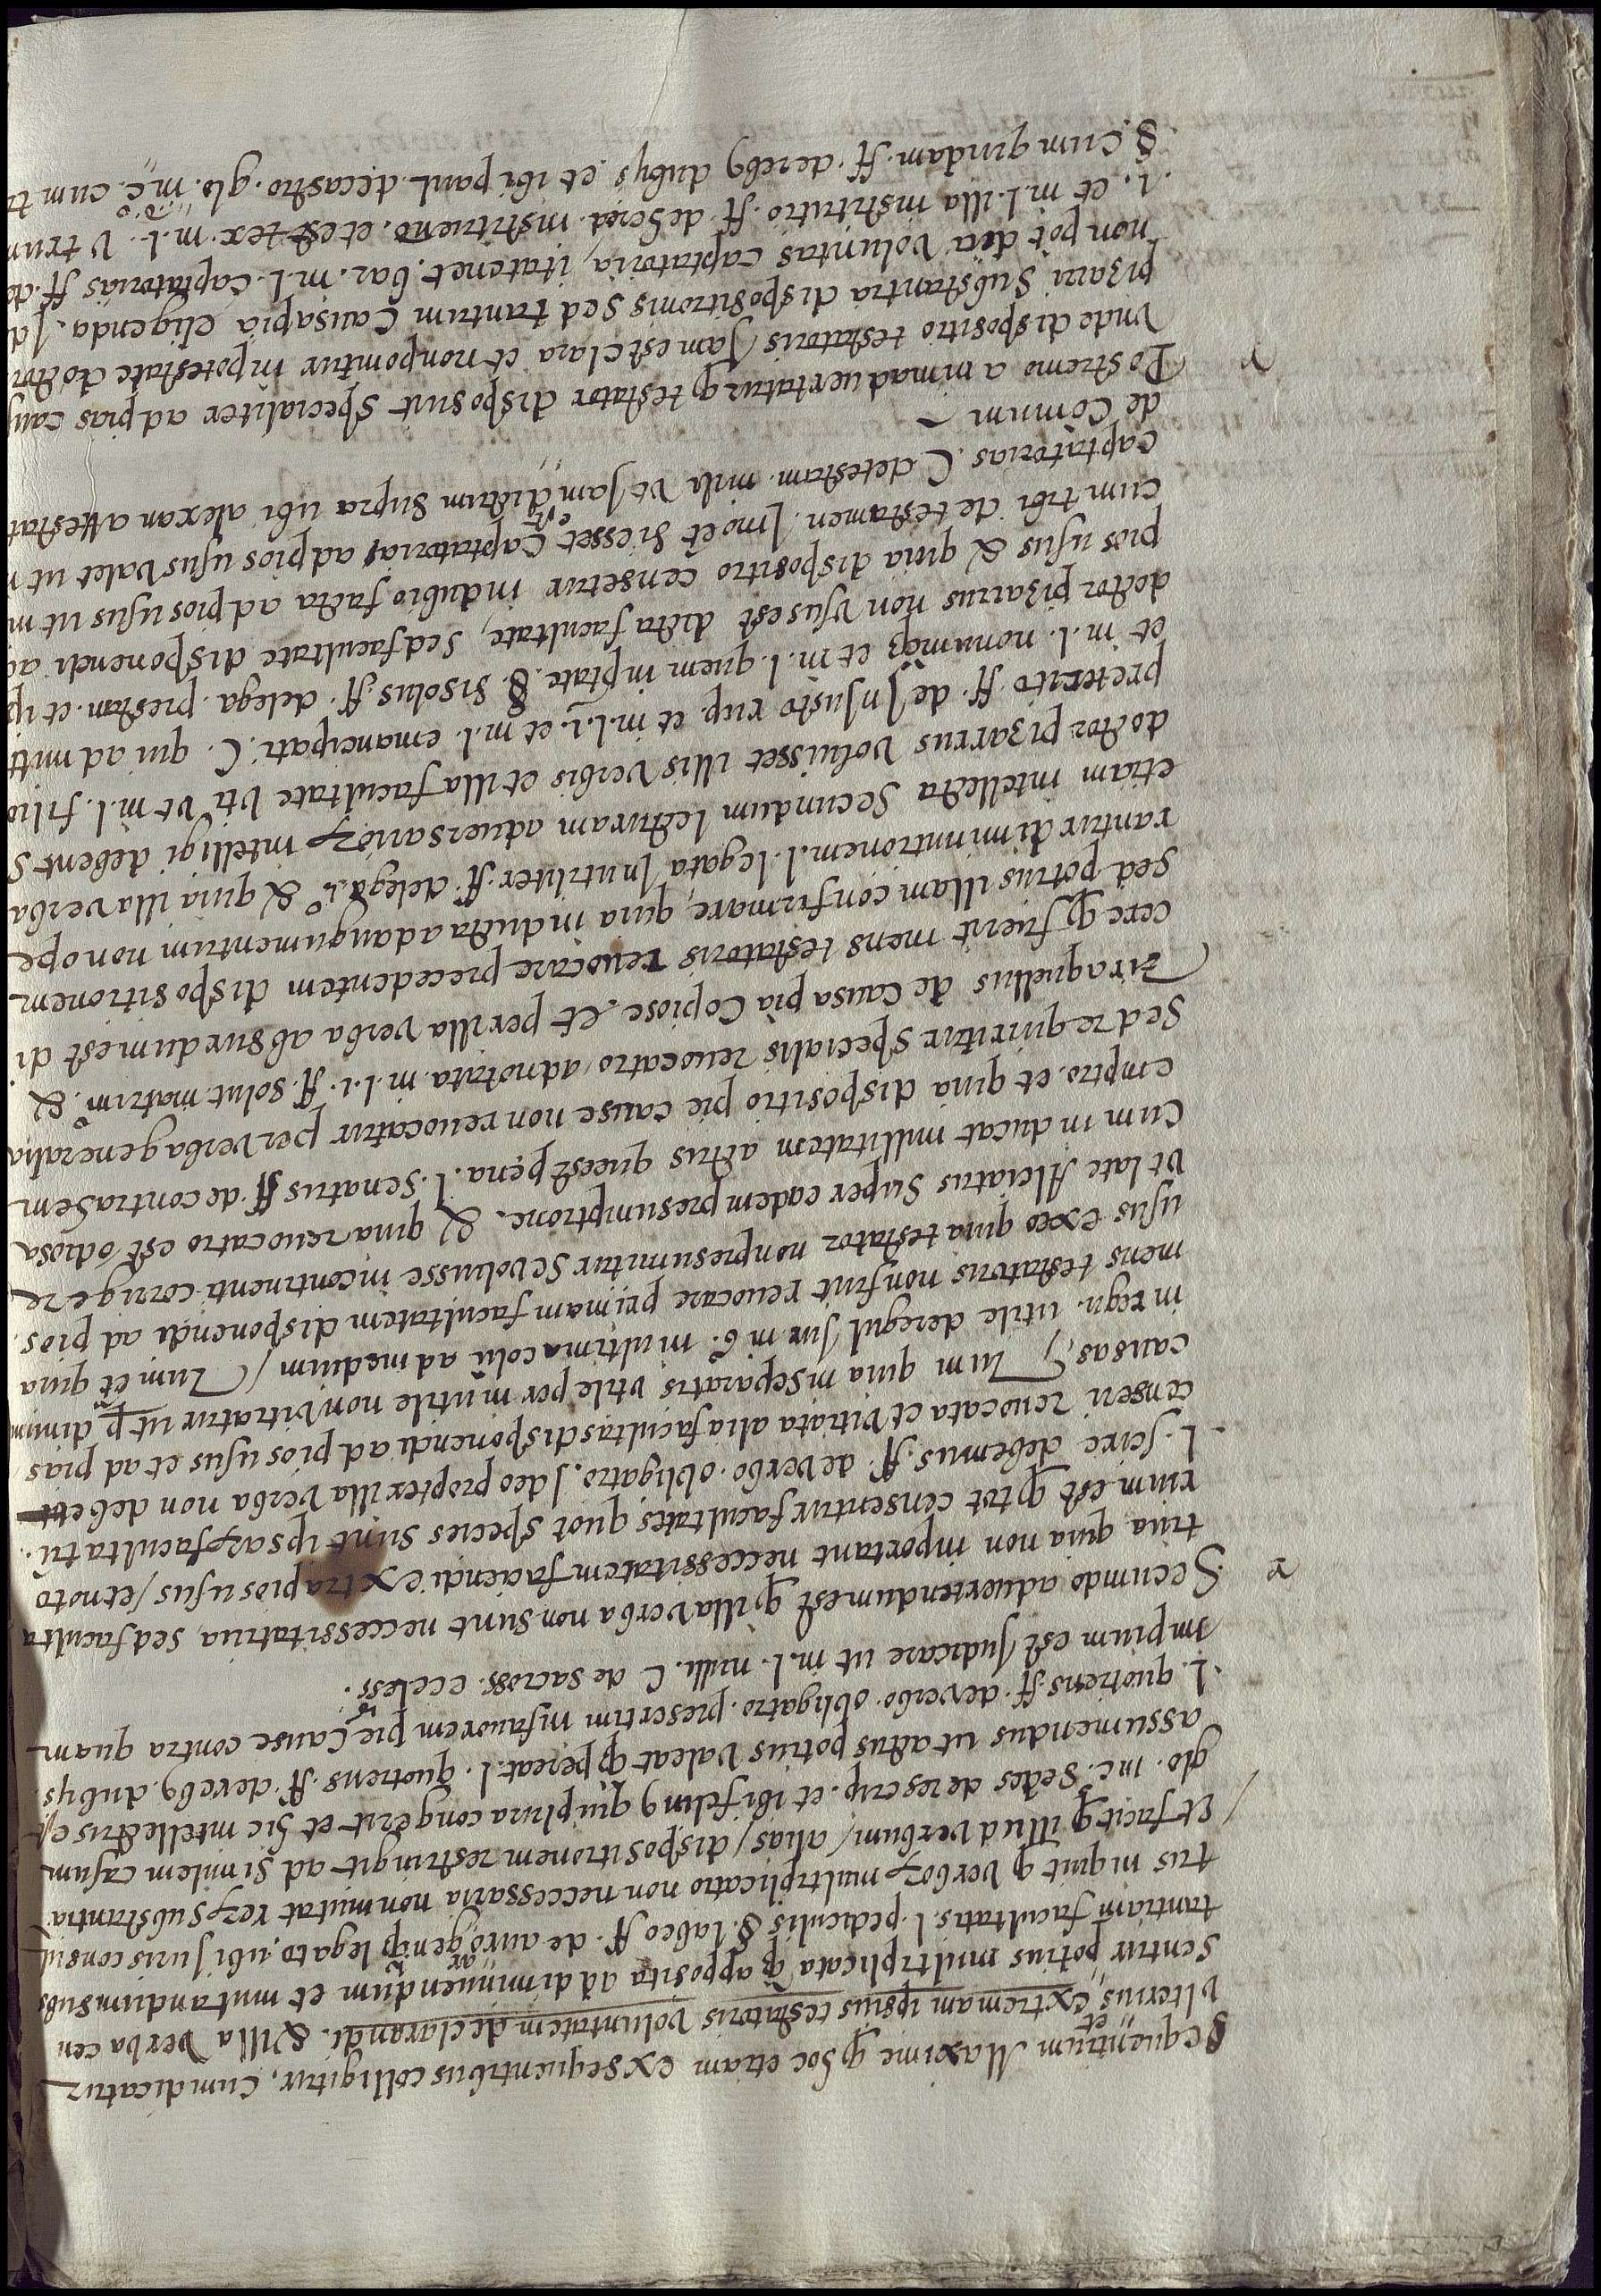 sequentium Maxime q hoc etiam ex sequentibus colligitur, cum dicatur
et
vlterius extremam ipsius testatoris voluntatem declarandi. & illa verba cen
sentur potius multiplicata q̃ apposita ad diminuendum et mutandum subs
tantiam facultatis. l. pediculis §. labeo ff. de auro. argen. legato. ubi Juris consul
tus inquit q verboꝝ multiplicatio non neccessaria non mutat reꝝ substantiã
et facit q illud verbum / alias / dispositionem restringit ad similem casum
glo. in c. sedes de rescrip. et ibi felin9 qui plura congerit et sic intellectus est
assumendus ut actus potius valeat q̃ pereat. l. quotiens. ff. de reb9 dubijs.
l. quotiens ff. de verbo. obligatio. presertim in fauorem pie cause contra quam
impium est Judicare ut in l. nulli. C de sacros. eccless.
2
Secundo aduertendum est q illa verba non sunt neccessitatiua sed faculta
tiua quia non important neccessitatem faciendi extra pios usus / et noto
rium est q tot censentur facultates quot species sunt ipsaꝝ facultatũ.
l. scire debemus. ff. de verbo. obligatio. Ideo propter illa verba non debet
censeri reuocata et vitiata alia facultas disponendi ad pios usus et ad pias
causas, / Tum quia in separatis vtile per inutile non vitiatur ut
in regu. utile de regul Jur. in 6. in ultima colũ ad medium / Tum et quia
mens testatoris non fuit reuocare primam facultatem disponendi ad pios.
usus ex eo quia testator non presumitur se voluisse incontinenti corrigere
vt late Alciatus super eadem presumptione. & quia reuocatio est odiosa
cum inducat nullitatem actus que est pena. l. senatus ff. de contrahem
emptio. et quia dispositio pie cause non reuocatur per verba generalia
sed requiritur specialis reuocatio adnotata in l. 1. ff. solut. matrim.º &
Tiraquellus de causa pia copiose. et per illa verba absurdum est di
cere q fuerit mens testatoris reuocare precedentem dispositionem
sed potius illam confirmare, quia inducta ad augumentum non ope
rantur diminutionem. l. legata Inutiliter. ff. de lega. 1.º & quia illa verba
etiam intellecta secundum lecturam aduersarioꝝ intelligi debent s
doctor pizarrus voluisset illis verbis et illa facultate vti vt in l. filio
preterito ff. de Injusto rup. et in l. 1. et in l. emancipati. C. qui admitti
et in l. nonumq̃ et in l. quem inptate. §. si solus. ff. de lega. prestan. et ip
doctor pizarrus non vsus est dicta facultate, sed facultate disponendi a
pios usus & quia dispositio censetur in dubio facta ad pios usus ut in
cum tibi de testamen. Imo et si esset captatoria ad pios usus valet ut
captatorias. C de testam. mili. vt Jam dictum supra ubi alexan attestat
de comuni
2
Postremo animaduertatur q testator disposuit specialiter ad pias cau
vnde dispositio testatoris Jam est clara et non ponitur in potestate doctor
pizarri substantia dispositionis sed tantum causa pia eligenda. Id
non pot dici voluntas captatoria, ita tenet. bar. in l. captatorias ff. de
1. et in l. illa institutio. ff. de hered. instituend. et est tex. in l. vtrum
§. cum quidam. ff. de reb9 dubijs et ibi paul. de castro. glo. in c. cum ti